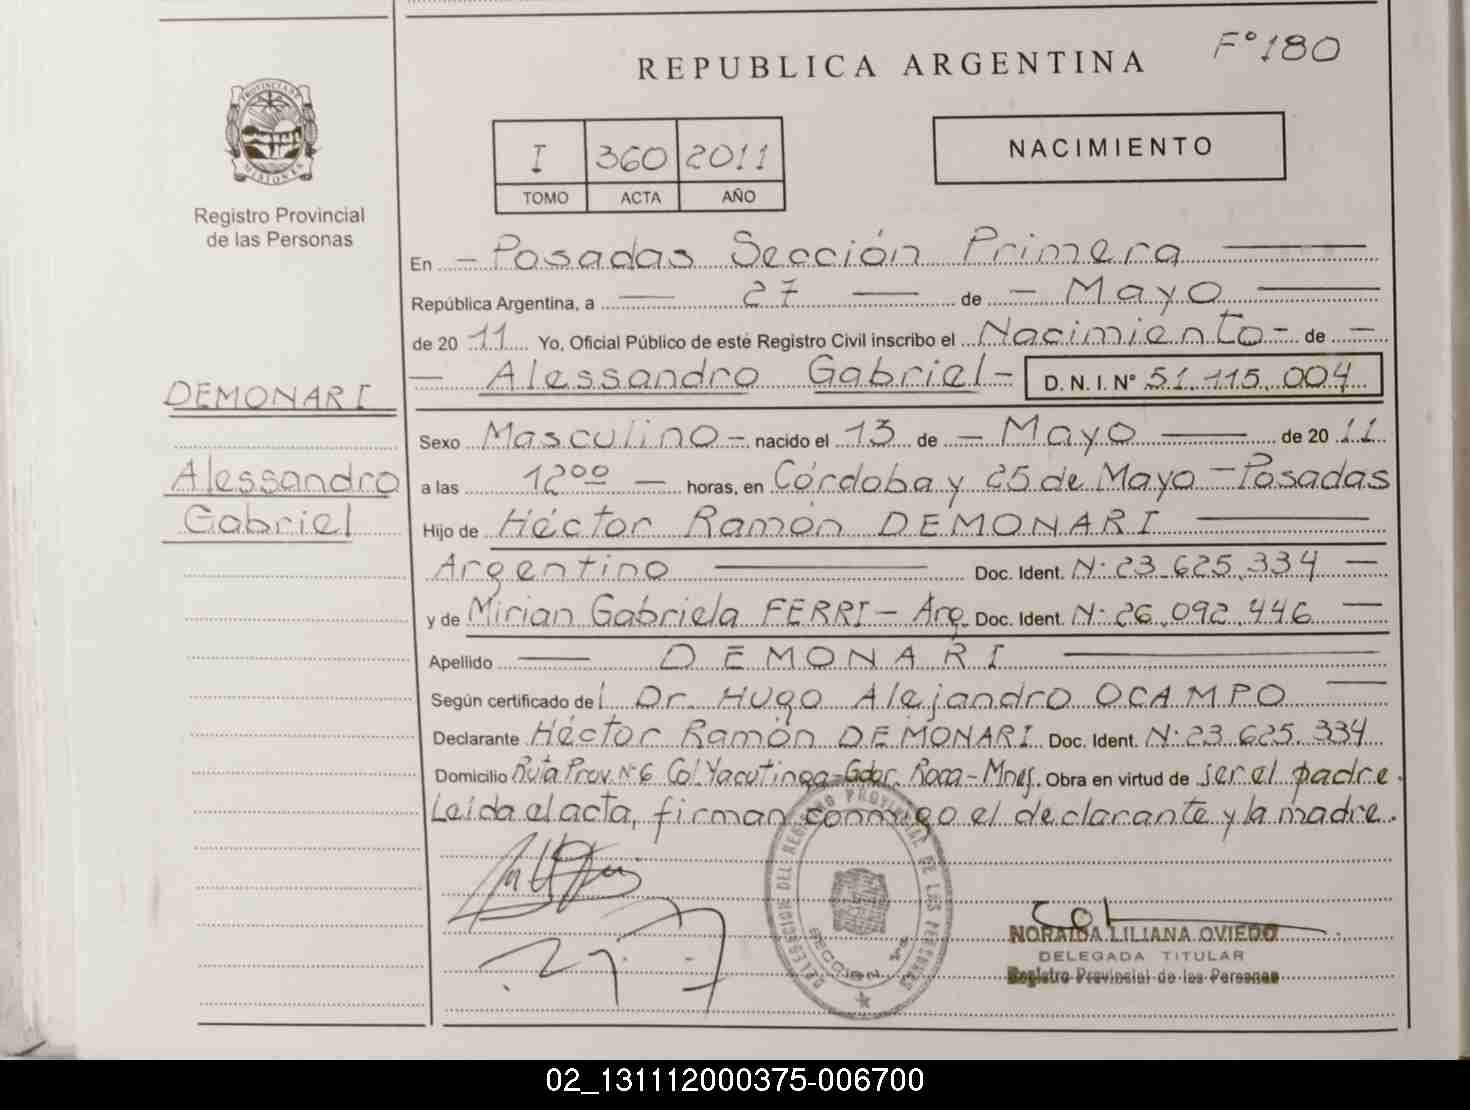 REPUBLICA ARGENTINA
Fº 180
PROVINCIA DE
MISIONES
Registro Provincial
de las Personas
I 360 2011
TOMO ACTA AÑO
NACIMIENTO
En - Posadas Sección Primera
República Argentina, a 27 de - Mayo
de 20 11 Yo, Oficial Público de esté Registro Civil inscribo el Nacimiento - de -
- Alessandro Gabriel - D. N. I. Nº 51.115.004
DEMONARI
Alessandro
Gabriel
Sexo Masculino - nacido el 13 de - Mayo de 20 11
a las 12ºº - horas, en Córdoba y 25 de Mayo - Posadas
Hijo de Héctor Ramón DEMONARI
Argentino Doc. Ident. N: 23.625.334 -
y de Mirian Gabriela FERRI - Arg. Doc. Ident. N: 26.092.446 -
Apellido - DEMONARI
Según certificado del Dr. Hugo Alejandro OCAMPO -
Declarante Héctor Ramón DEMONARI Doc. Ident. N: 23.625.334
Domicilio Ruta Prov. Nº 6 Col. Yacutinga - Gdor. Roca - Mnes. Obra en virtud de ser el padre.
Leída el acta, firman conmigo el declarante y la madre.
DELEGACION DEL REGISTRO PROVINCIAL DE LAS PERSONAS
SECCION 1ª
NORAIDA LILIANA OVIEDO
DELEGADA TITULAR
Registro Provincial de las Personas
02_131112000375-006700